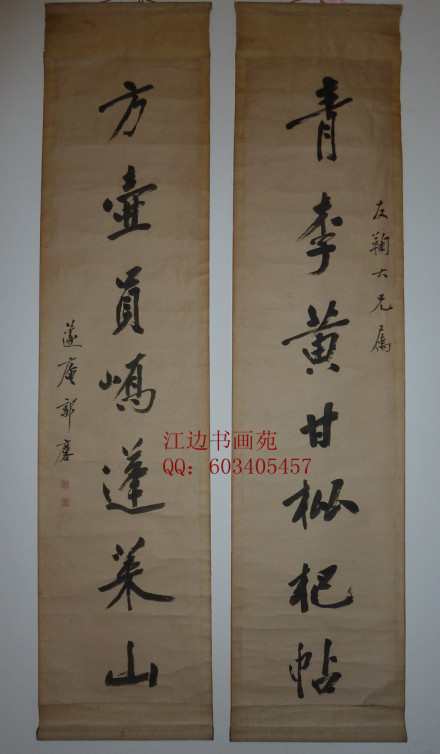 友鞠大兄属
青李黄甘枇杷帖
方壶員嶠蓬莱山
蘧庵郭麐
江边书画苑
QQ：603405457